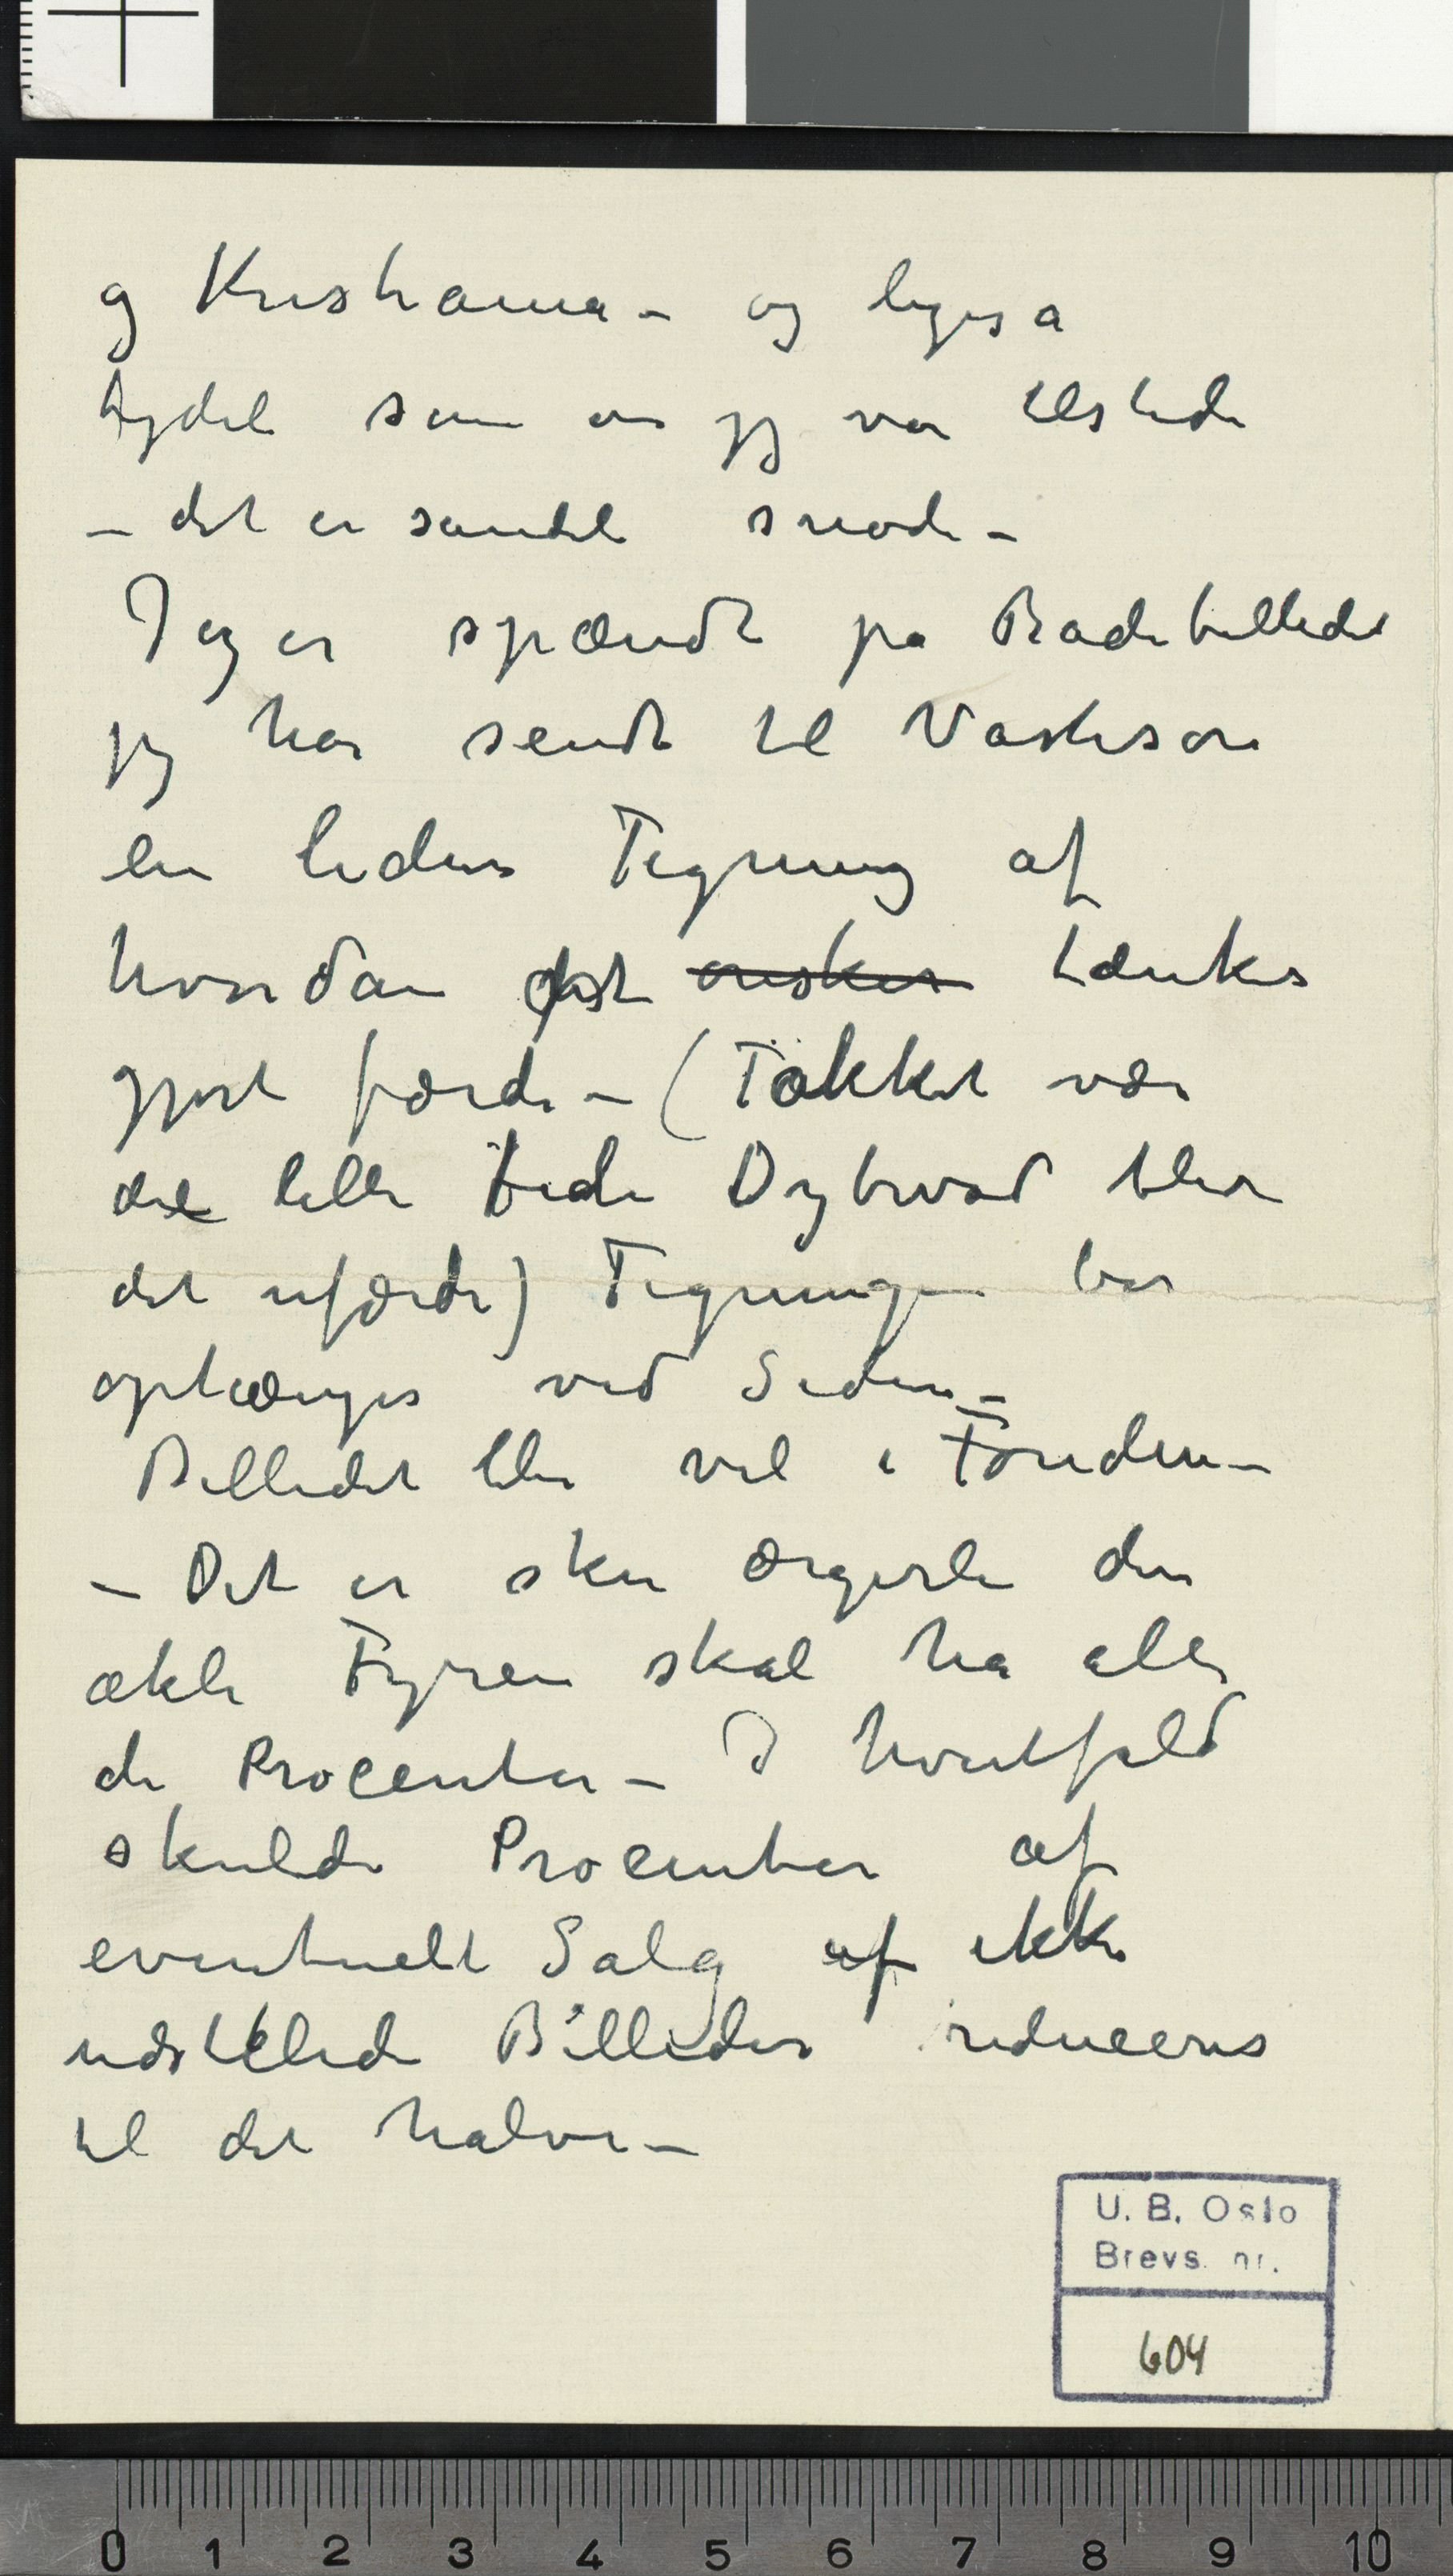 og Kristiania – og ligeså
tydeli som om jeg var tilstede
– det er sandeli snode –
Jeg er spændt på Badebilledet
jeg har sendt til Vaskeson
en liden Tegning af
hvordan det ønskes tænkes
gjort færdi – (Takket være
det lille Fede Dybwad blev
det ufærdi) Tegningen bør
ophænges ved Siden –
Billedet ble vel i Fonden –
– Det er sku ærgerli den
ækle Fyren skal ha alle
de Procenter – I hvertfald
skulde Procenter af
eventuelt Salg af ikke
udstillede Billeder reduceres
til det halve –
U. B. Oslo
Brevs. nr.
604
0 1 2 3 4 5 6 7 8 9 10